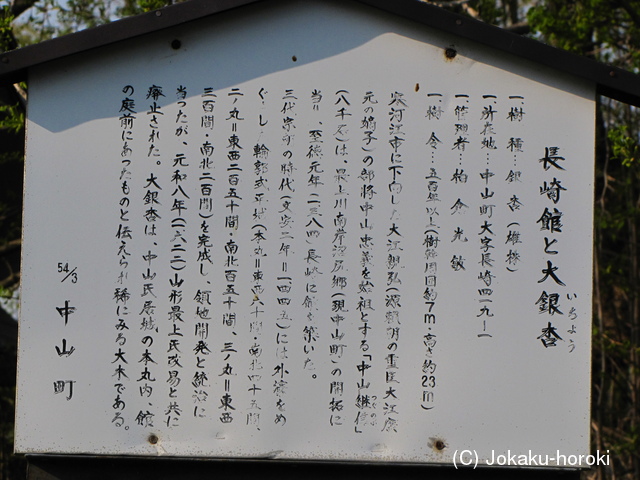 長崎館と大銀杏
いちょう
一、樹種…銀杏(雄株)
一、所在地…中山町大字長崎四一九ー一
一、管理者…柏倉光敏
一、樹令…五百年以上(樹幹周囲約7m・高さ約23m)
寒河江市に下向した大江親弘(源頼朝の重臣大江広
元の嫡子)の部将中山忠義を始祖とする「中山継信」
(八千石)は、最上川南岸沼尻郷(現中山町)の開拓に
当り、至徳元年(一三八四)長崎に館を築いた。
三代宗朝の時代(文安二年=一四四五)には外濠をめ
ぐらし、輪郭式平城(本丸=東西八十間・南北四十五間、
二ノ丸=東西二百五十間・南北百五十間、三ノ丸=東西
三百間・南北二百間)を完成し、領地開発と統治に
当ったが、元和八年(一六二二)山形最上氏改易と共に
廃止された。大銀杏は、中山氏居城の本丸内、館
の庭前にあったものと伝えられ稀にみる大木である。
54/3 中山町
(C) Jokaku-horoki